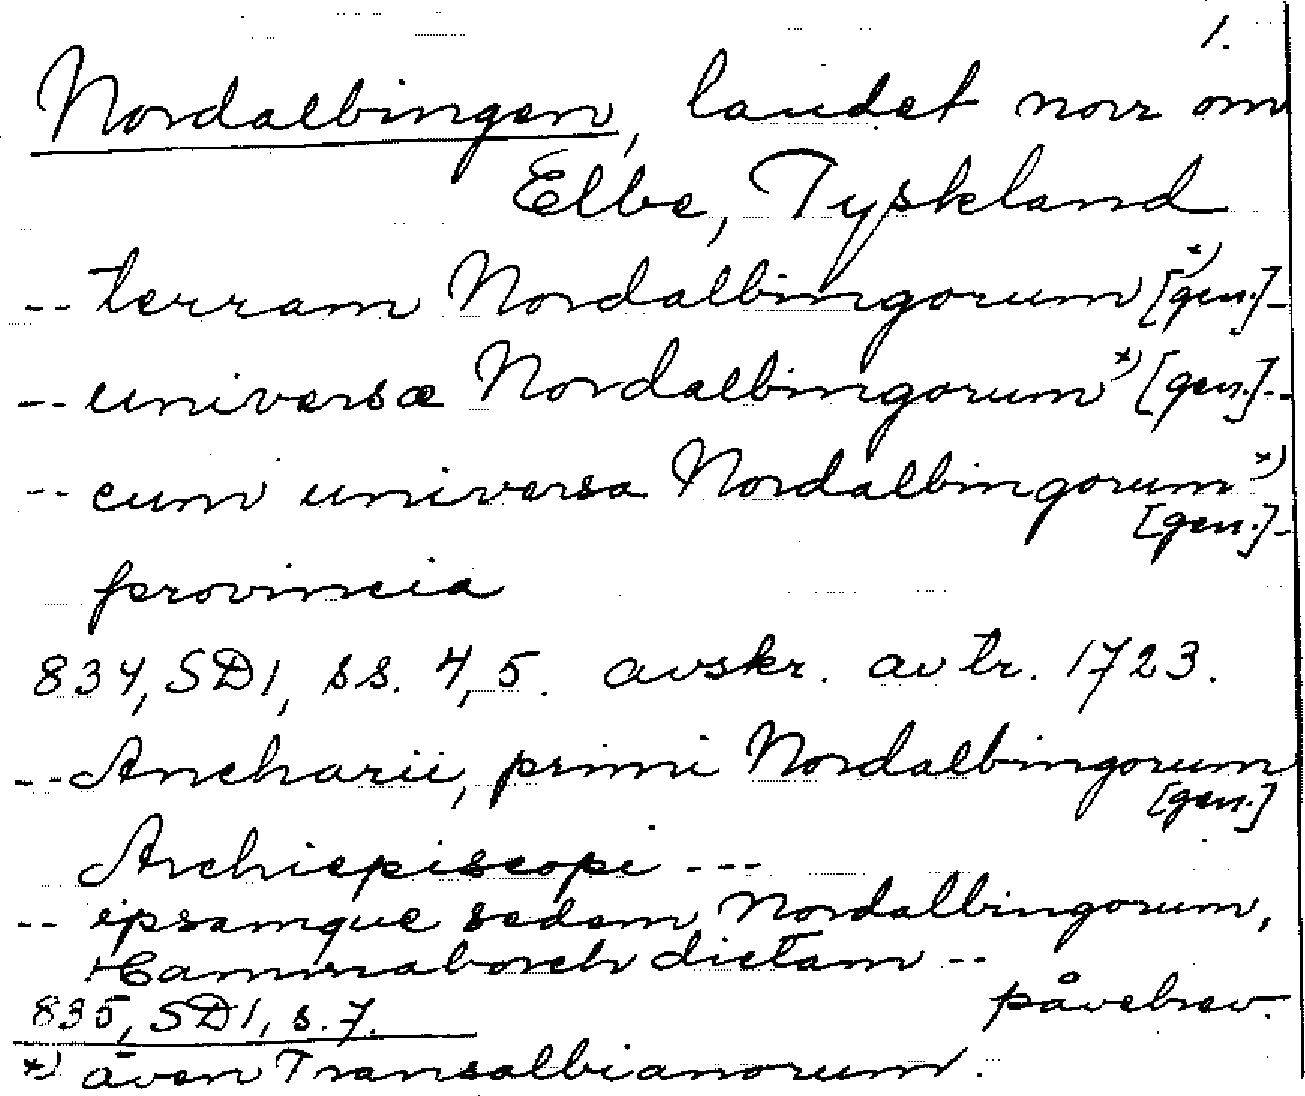 1.
Nordalbingen, landet norr om
Elbe, Tyskland
-- terram Nordalbingorum *) [gen.] -
-- universæ Nordalbingorum *) [gen.] --
-- cum universa Nordalbingorum *)
[gen.] -
provincia
834, SD1, ss. 4, 5. avskr. av tr. 1723.
-- Ancharii, primi Nordalbingorum
[gen.]
Archiepiscopi ---
-- ipsamque sedem Nordalbingorum,
Hammaborch dictam --
påvebrev.
835, SD1, s. 7.
*) även Transalbianorum.